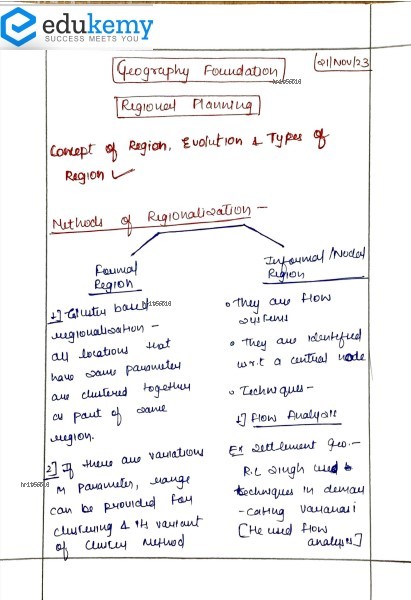 edukemy
SUCCESS MEETS YOU
21/NOV/23
Geography Foundation
Regional Planning
Concept of Region, Evolution & Types of
Region ✓
Methods of Regionalization –
Formal
Region
1] Cluster based
regionalization –
all locations that
have same parameter
are clustered together
as part of same
region.
2] If there are variations
in parameter, range
can be provided for
clustering & it variant
of cluster method
Informal/Nodal
Region
• They are flow
systems
• They are identified
w.r.t a central node
• Techniques –
1] Flow Analysis
Ex Settlement Geo.–
R.L Singh used
techniques in demar
-cating varanasi
[He used flow
analysis]